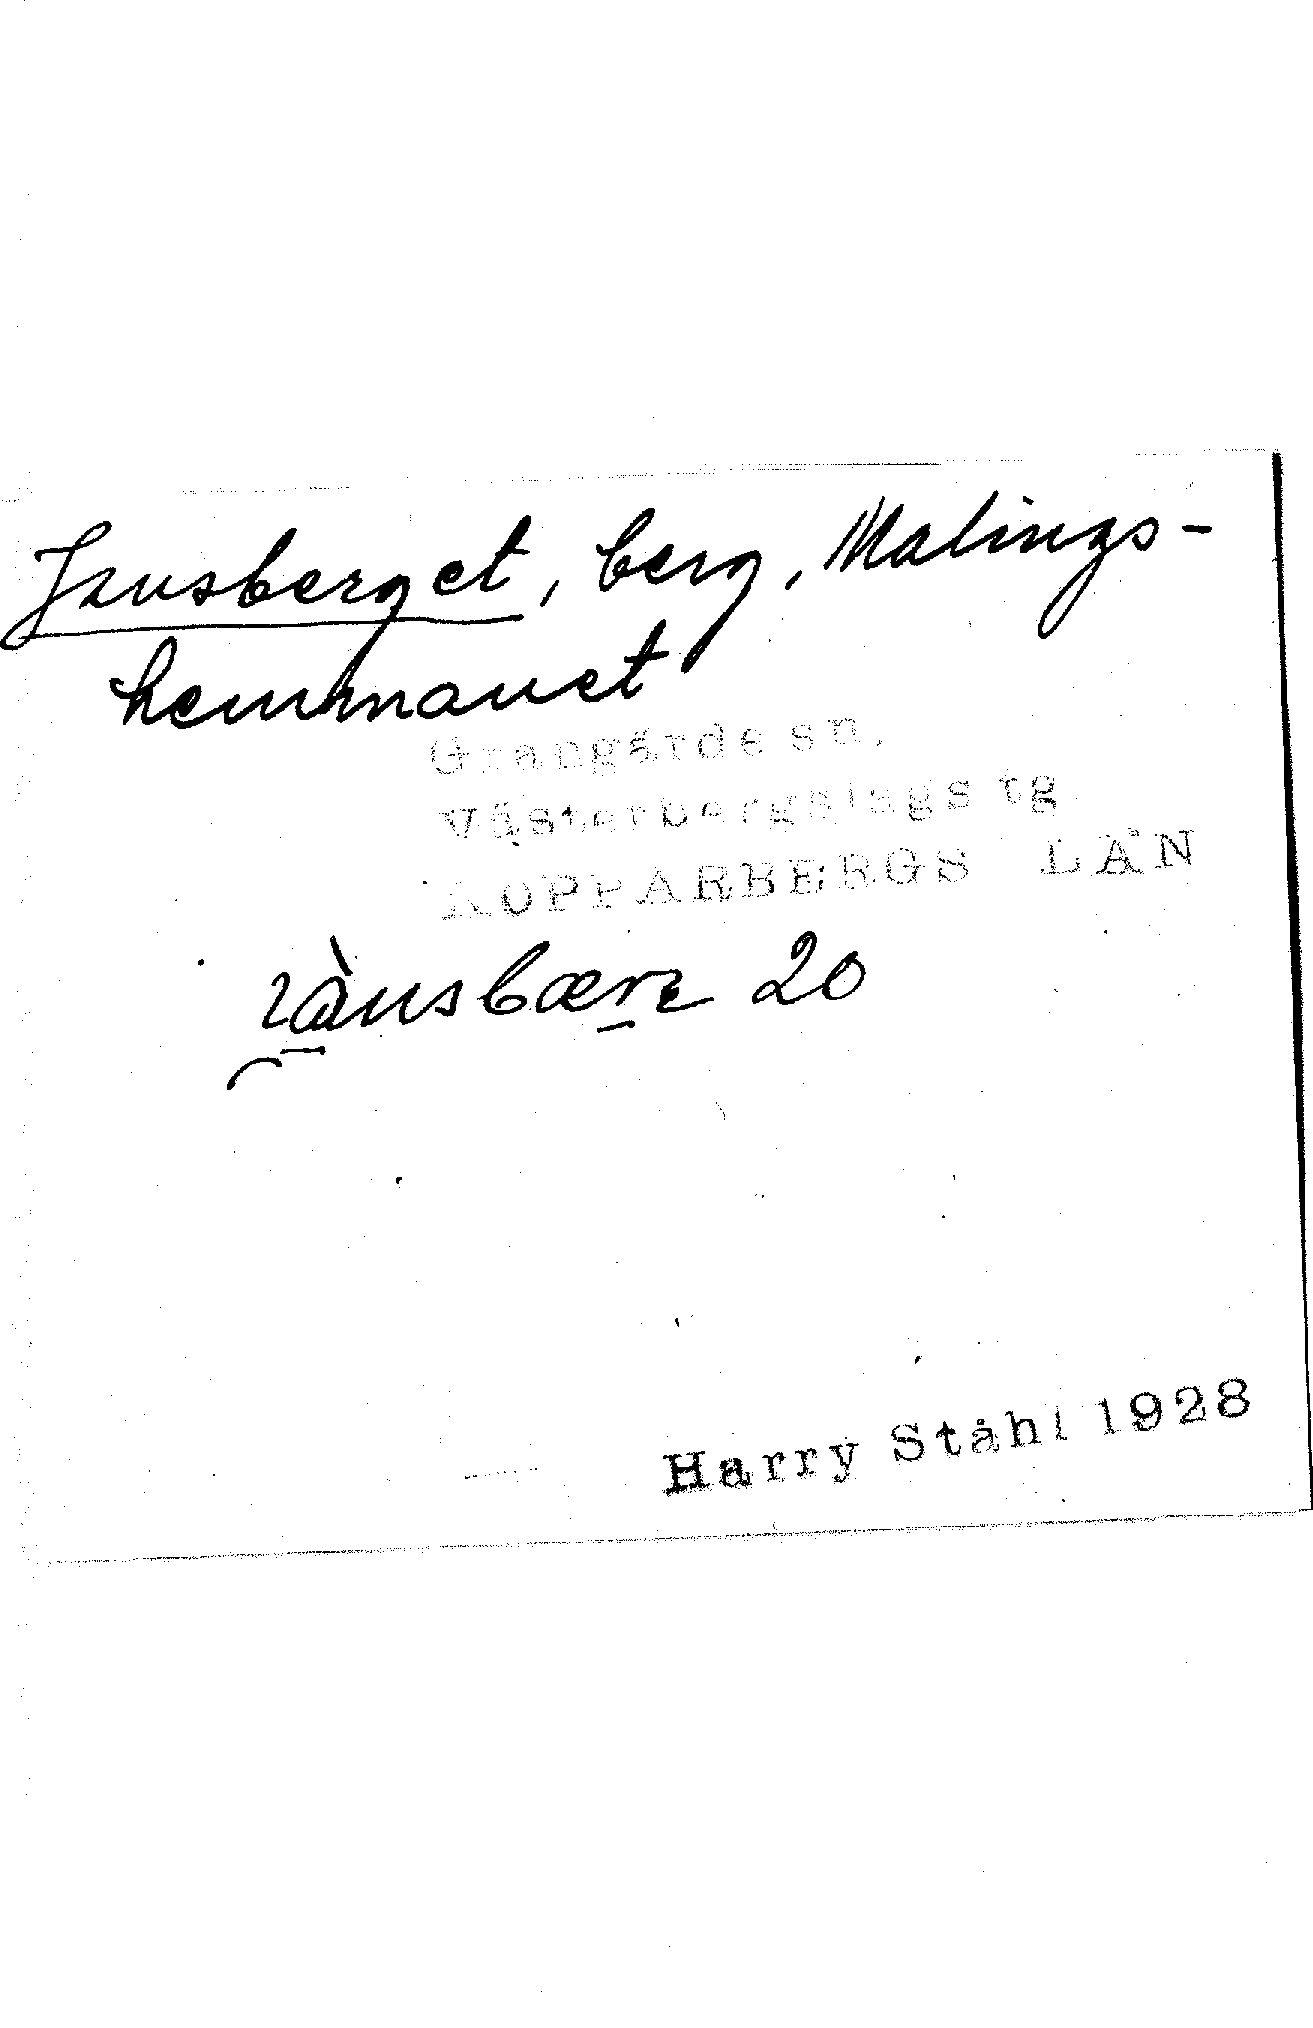 Jansberget, berg, Malings-
hemmanet
Grangärde sn.
Västerbergslags tg.
KOPPARBERGS LÄN
20
Harry Ståhl 1928